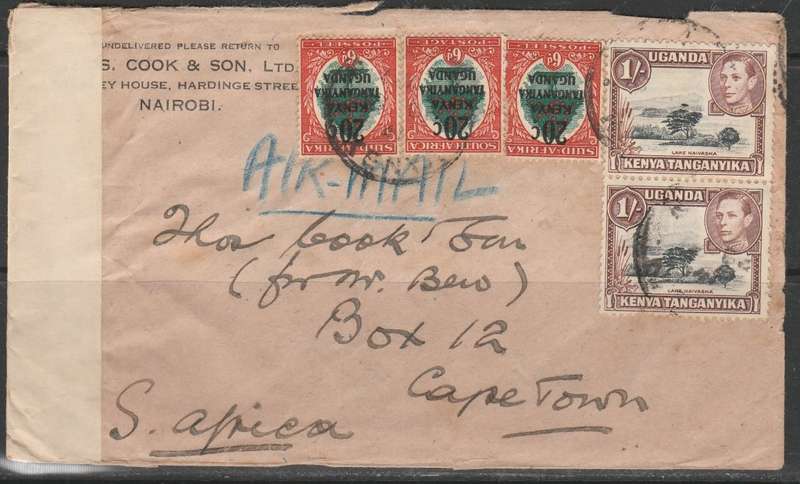 UNDELIVERED PLEASE RETURN TO
S. COOK & SON, LTD.
EY HOUSE, HARDINGE STREE
NAIROBI.
SUID-AFRIKA
20c
KENYA
TANGANYIKA
UGANDA
6D
POSSEËL
SOUTH AFRICA
20c
KENYA
TANGANYIKA
UGANDA
6D
POSTAGE
SUID-AFRIKA
20c
KENYA
TANGANYIKA
UGANDA
6D
POSSEËL
1/-
UGANDA
LAKE NAIVASHA
KENYA TANGANYIKA
1/-
UGANDA
LAKE NAIVASHA
KENYA TANGANYIKA
AIR-MAIL
Thos Cook & Son
(for Mr. Bew)
Box 12
Cape Town
S. Africa